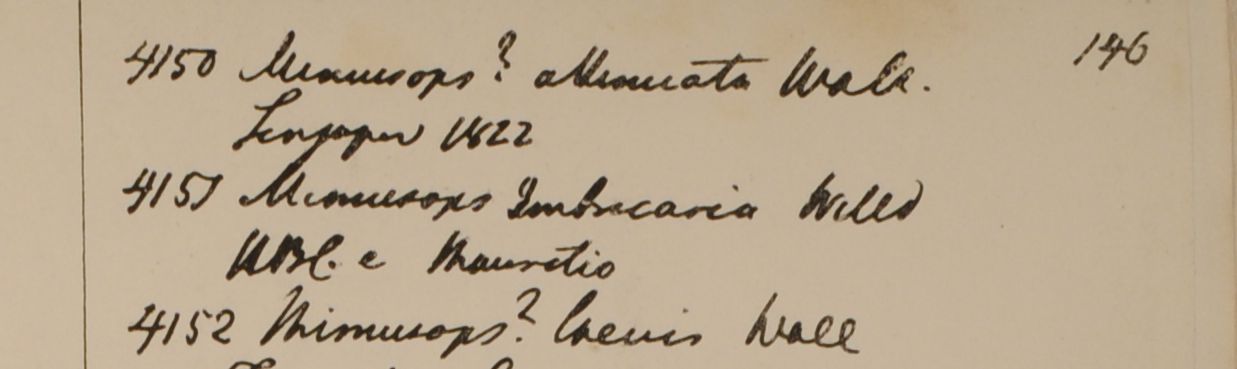 4150 Mimusops? attenuata Wall. 146
Singapur 1822
4151 Mimusops Imbricaria Willd
HBC. e Mauritio
4152 Mimusops? laevis Wall